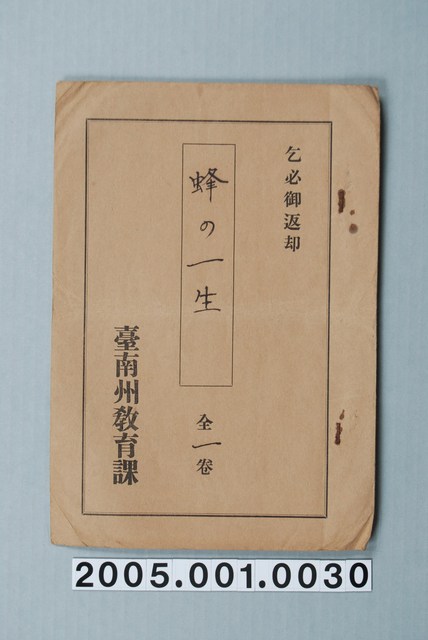 乞必御返却
蜂の一生
全一卷
臺南州教育課
2005.001.0030